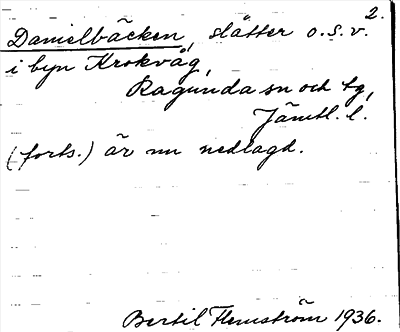 2.
Danielbäcken, slåtter o.s.v.
i byn Krokvåg,
Ragunda sn och tg,
Jämtl. l.
(forts.) är nu nedlagd.
Bertil Flemström 1936.